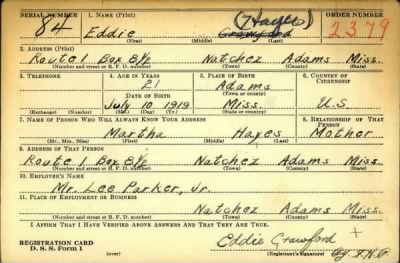 SERIAL NUMBER 1. NAME (Print) ORDER NUMBER
84 Eddie (Hayes) Crawford 2379
(First) (Middle) (Last)
2. ADDRESS (Print)
Route 1 Box 81½ Natchez Adams Miss.
(Number and street or R. F. D. number) (Town) (County) (State)
3. TELEPHONE 4. AGE IN YEARS 5. PLACE OF BIRTH 6. COUNTRY OF CITIZENSHIP
21 Adams
DATE OF BIRTH (Town or county)
July 10 1919 Miss. U.S.
(Exchange) (Number) (Mo.) (Day) (Yr.) (State or country)
7. NAME OF PERSON WHO WILL ALWAYS KNOW YOUR ADDRESS 8. RELATIONSHIP OF THAT PERSON
Martha Hayes Mother
(Mr., Mrs., Miss) (First) (Middle) (Last)
9. ADDRESS OF THAT PERSON
Route 1 Box 81½ Natchez Adams Miss.
(Number and street or R. F. D. number) (Town) (County) (State)
10. EMPLOYER'S NAME
Mr. Lee Parker, Jr.
11. PLACE OF EMPLOYMENT OR BUSINESS
Natchez Adams Miss.
(Number and street or R. F. D. number) (Town) (County) (State)
I AFFIRM THAT I HAVE VERIFIED ABOVE ANSWERS AND THAT THEY ARE TRUE.
REGISTRATION CARD
D. S. S. Form 1
Eddie Crawford +
(over) (Registrant's signature)